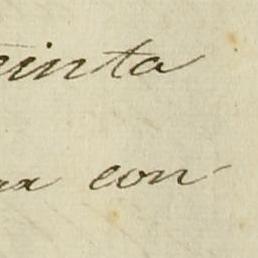 einta
ra con-